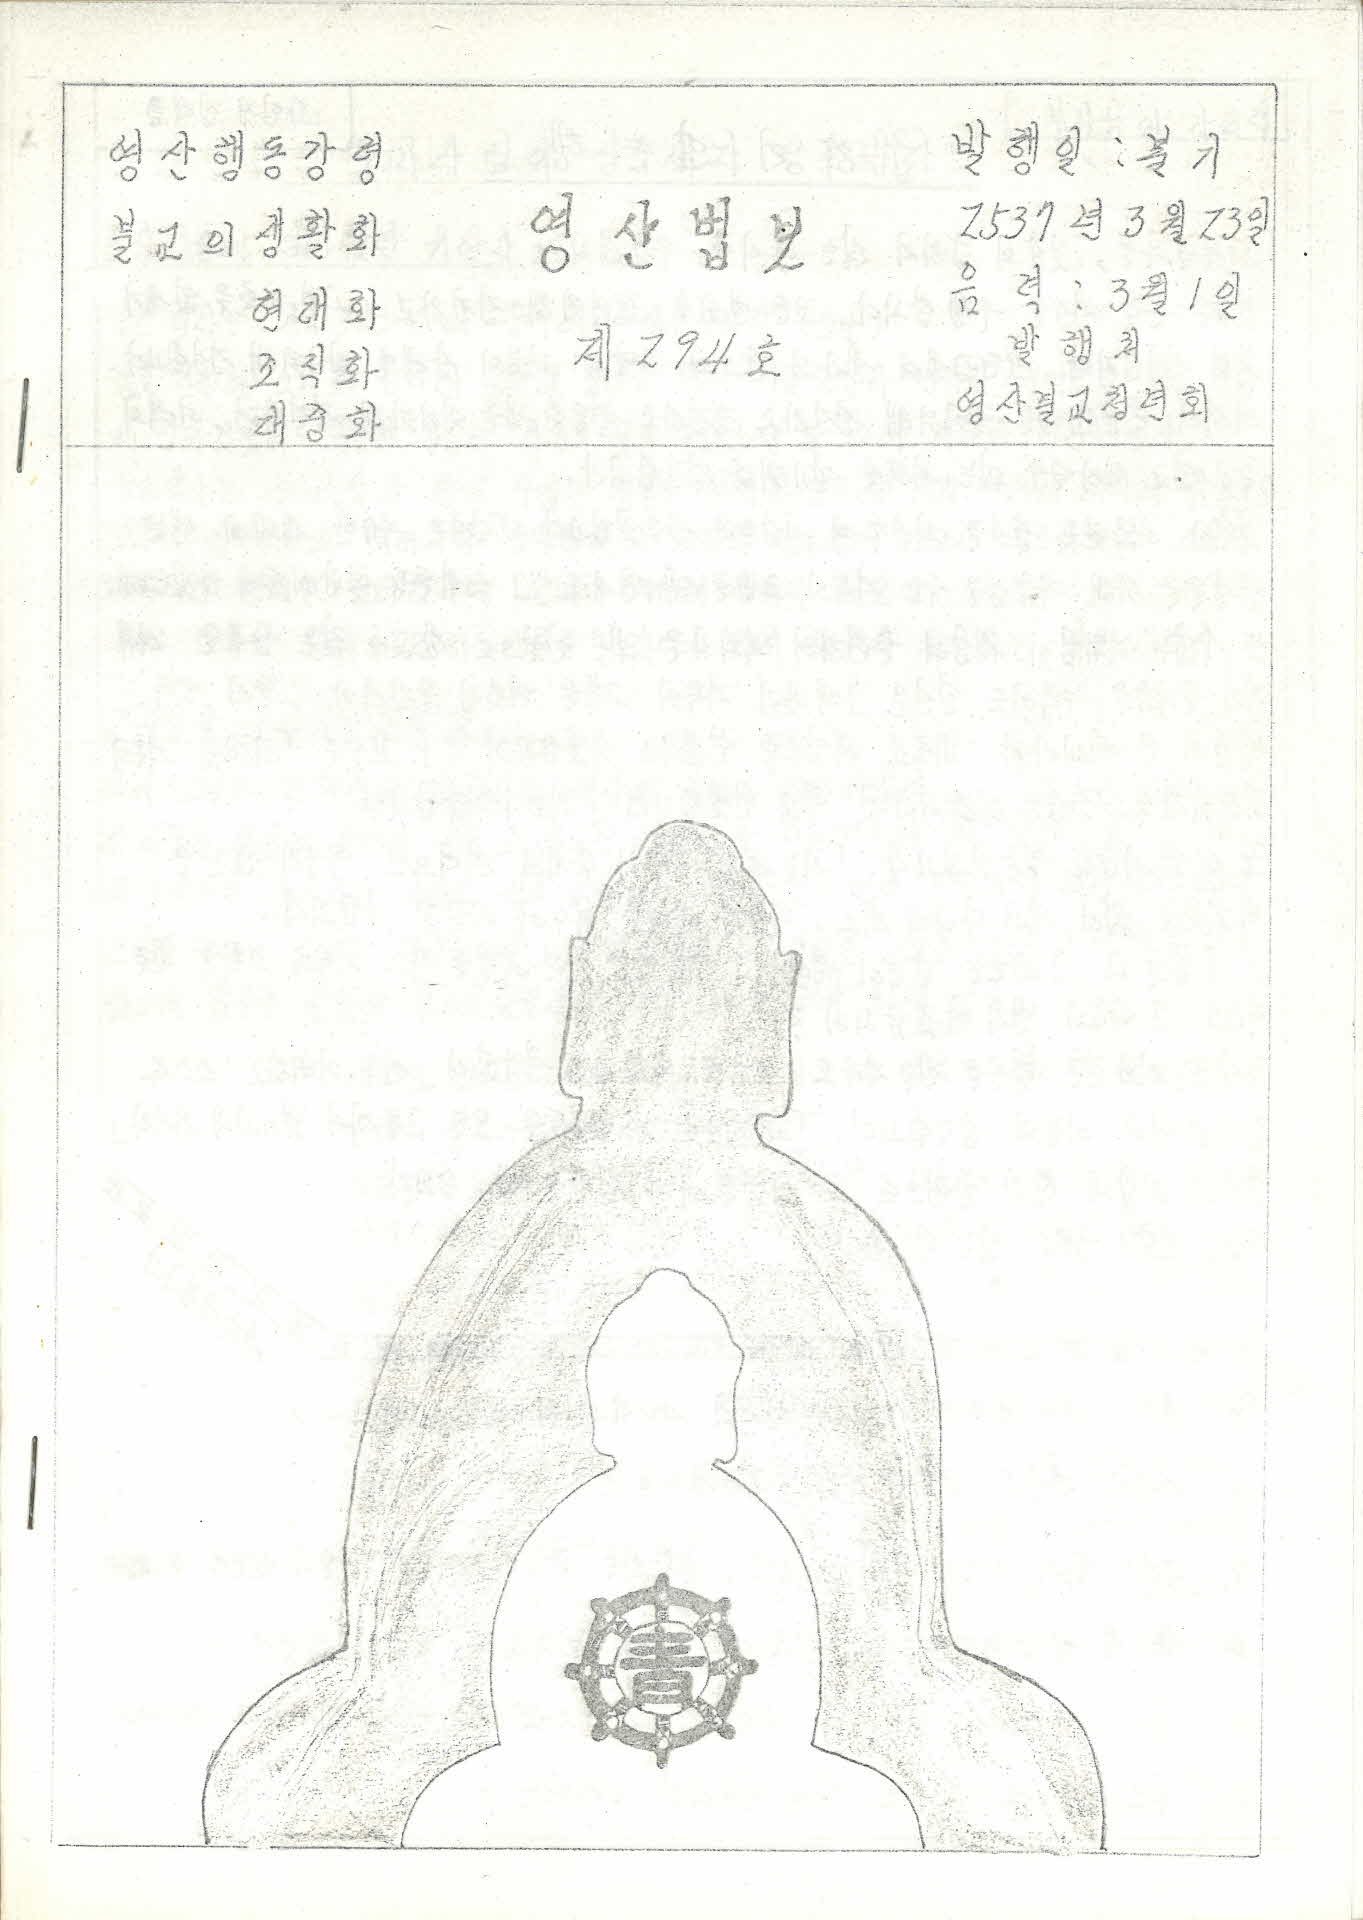 영산행동강령
불교의생활화
현대화
조직화
대중화
영산법보
제294호
발행일:불기
2537년3월23일
음력:3월1일
발행처
영산불교청년회
靑